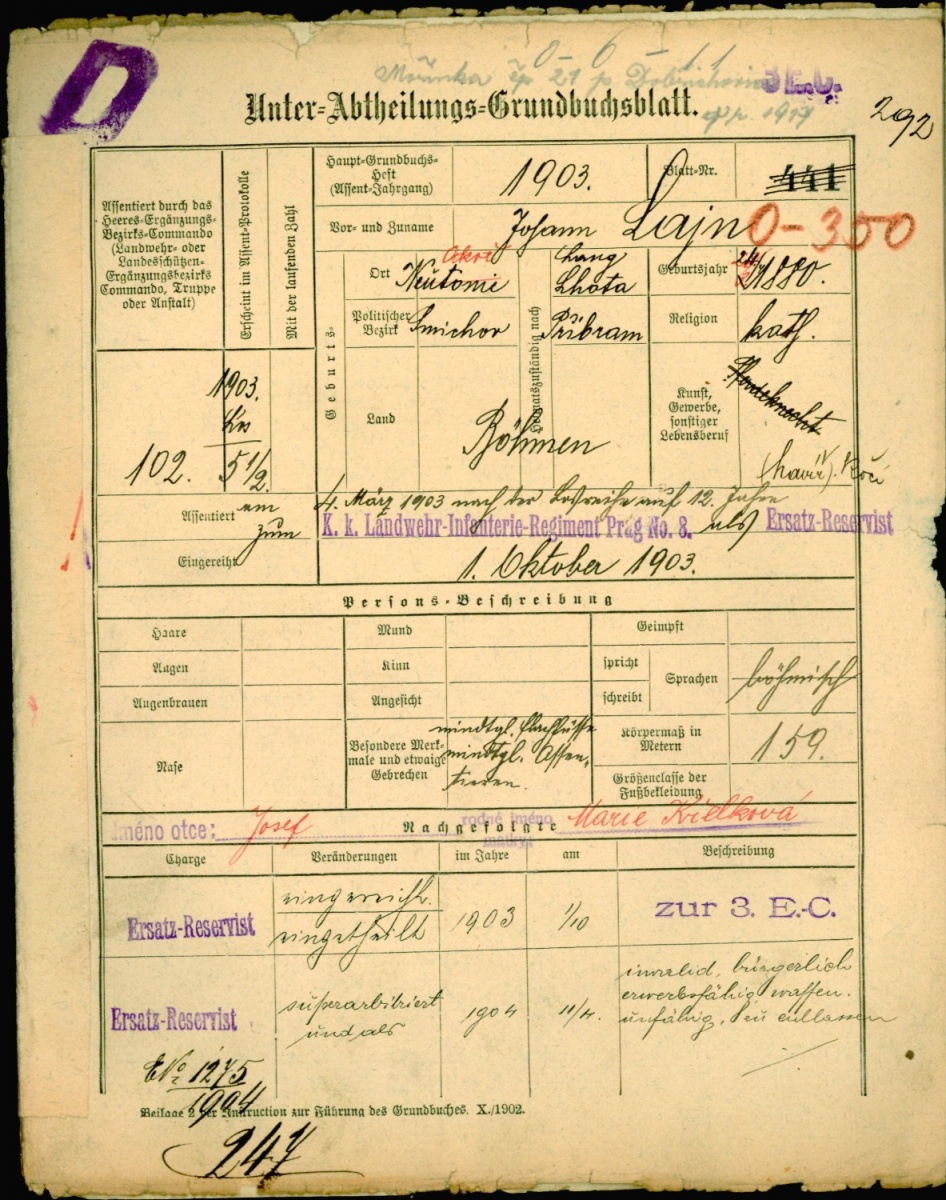 D
0-6-11
Mořinka čp 21 p. Dobřichovice
3 E.C.
Unter=Abtheilungs=Grundbuchsblatt.
1917
292
Assentiert durch das Heeres-Ergänzungs-Bezirks-Commando (Landwehr- oder Landesschützen-Ergänzungsbezirks Commando, Truppe oder Anstalt)
Erscheint im Assent-Protokolle
Mit der laufenden Zahl
Haupt-Grundbuchs-Heft (Assent-Jahrgang)
1903.
Blatt-Nr.
441
Vor- und Zuname
Johann Lajn
0-350
Geburts-
Ort
Heimatszuständig nach
Lang
Lhota
Geburtsjahr
1880.
Politischer Bezirk
Smichov
Přibram
Religion
kath.
Land
Böhmen
Kunst, Gewerbe, sonstiger Lebensberuf
Pferdeknecht
(havíř). Kočí
1903.
102.
5 1/2
Assentiert
am
4. März 1903 nach der Losreihe auf 12. Jahre
zum
K. k. Landwehr-Infanterie-Regiment Prag No. 8. als Ersatz-Reservist
Eingereiht
1. Oktober 1903.
Persons-Beschreibung
Haare
Mund
Geimpft
Augen
Kinn
spricht
schreibt
Sprachen
böhmisch
Augenbrauen
Angesicht
Nase
Besondere Merk-
male und etwaige
Gebrechen
mindtgl. Plachfüsse
mindtgl. Assen-
tieren.
Körpermaß in Metern
159.
Größenclasse der Fußbekleidung
Jméno otce: Josef
Nachgefolgte
rodné jméno matky: Marie
Charge
Veränderungen
im Jahre
am
Beschreibung
Ersatz-Reservist
eingereiht.
eingetheilt
1903
1/10
zur 3. E.-C.
Ersatz-Reservist
superarbitriert
und als
1904
11/4.
invalid, bürgerlich
erwerbsfähig waffen-
unfähig, zu entlassen
ENo 1275
1904
Beilage 2 der Instruction zur Führung des Grundbuches. X./1902.
247